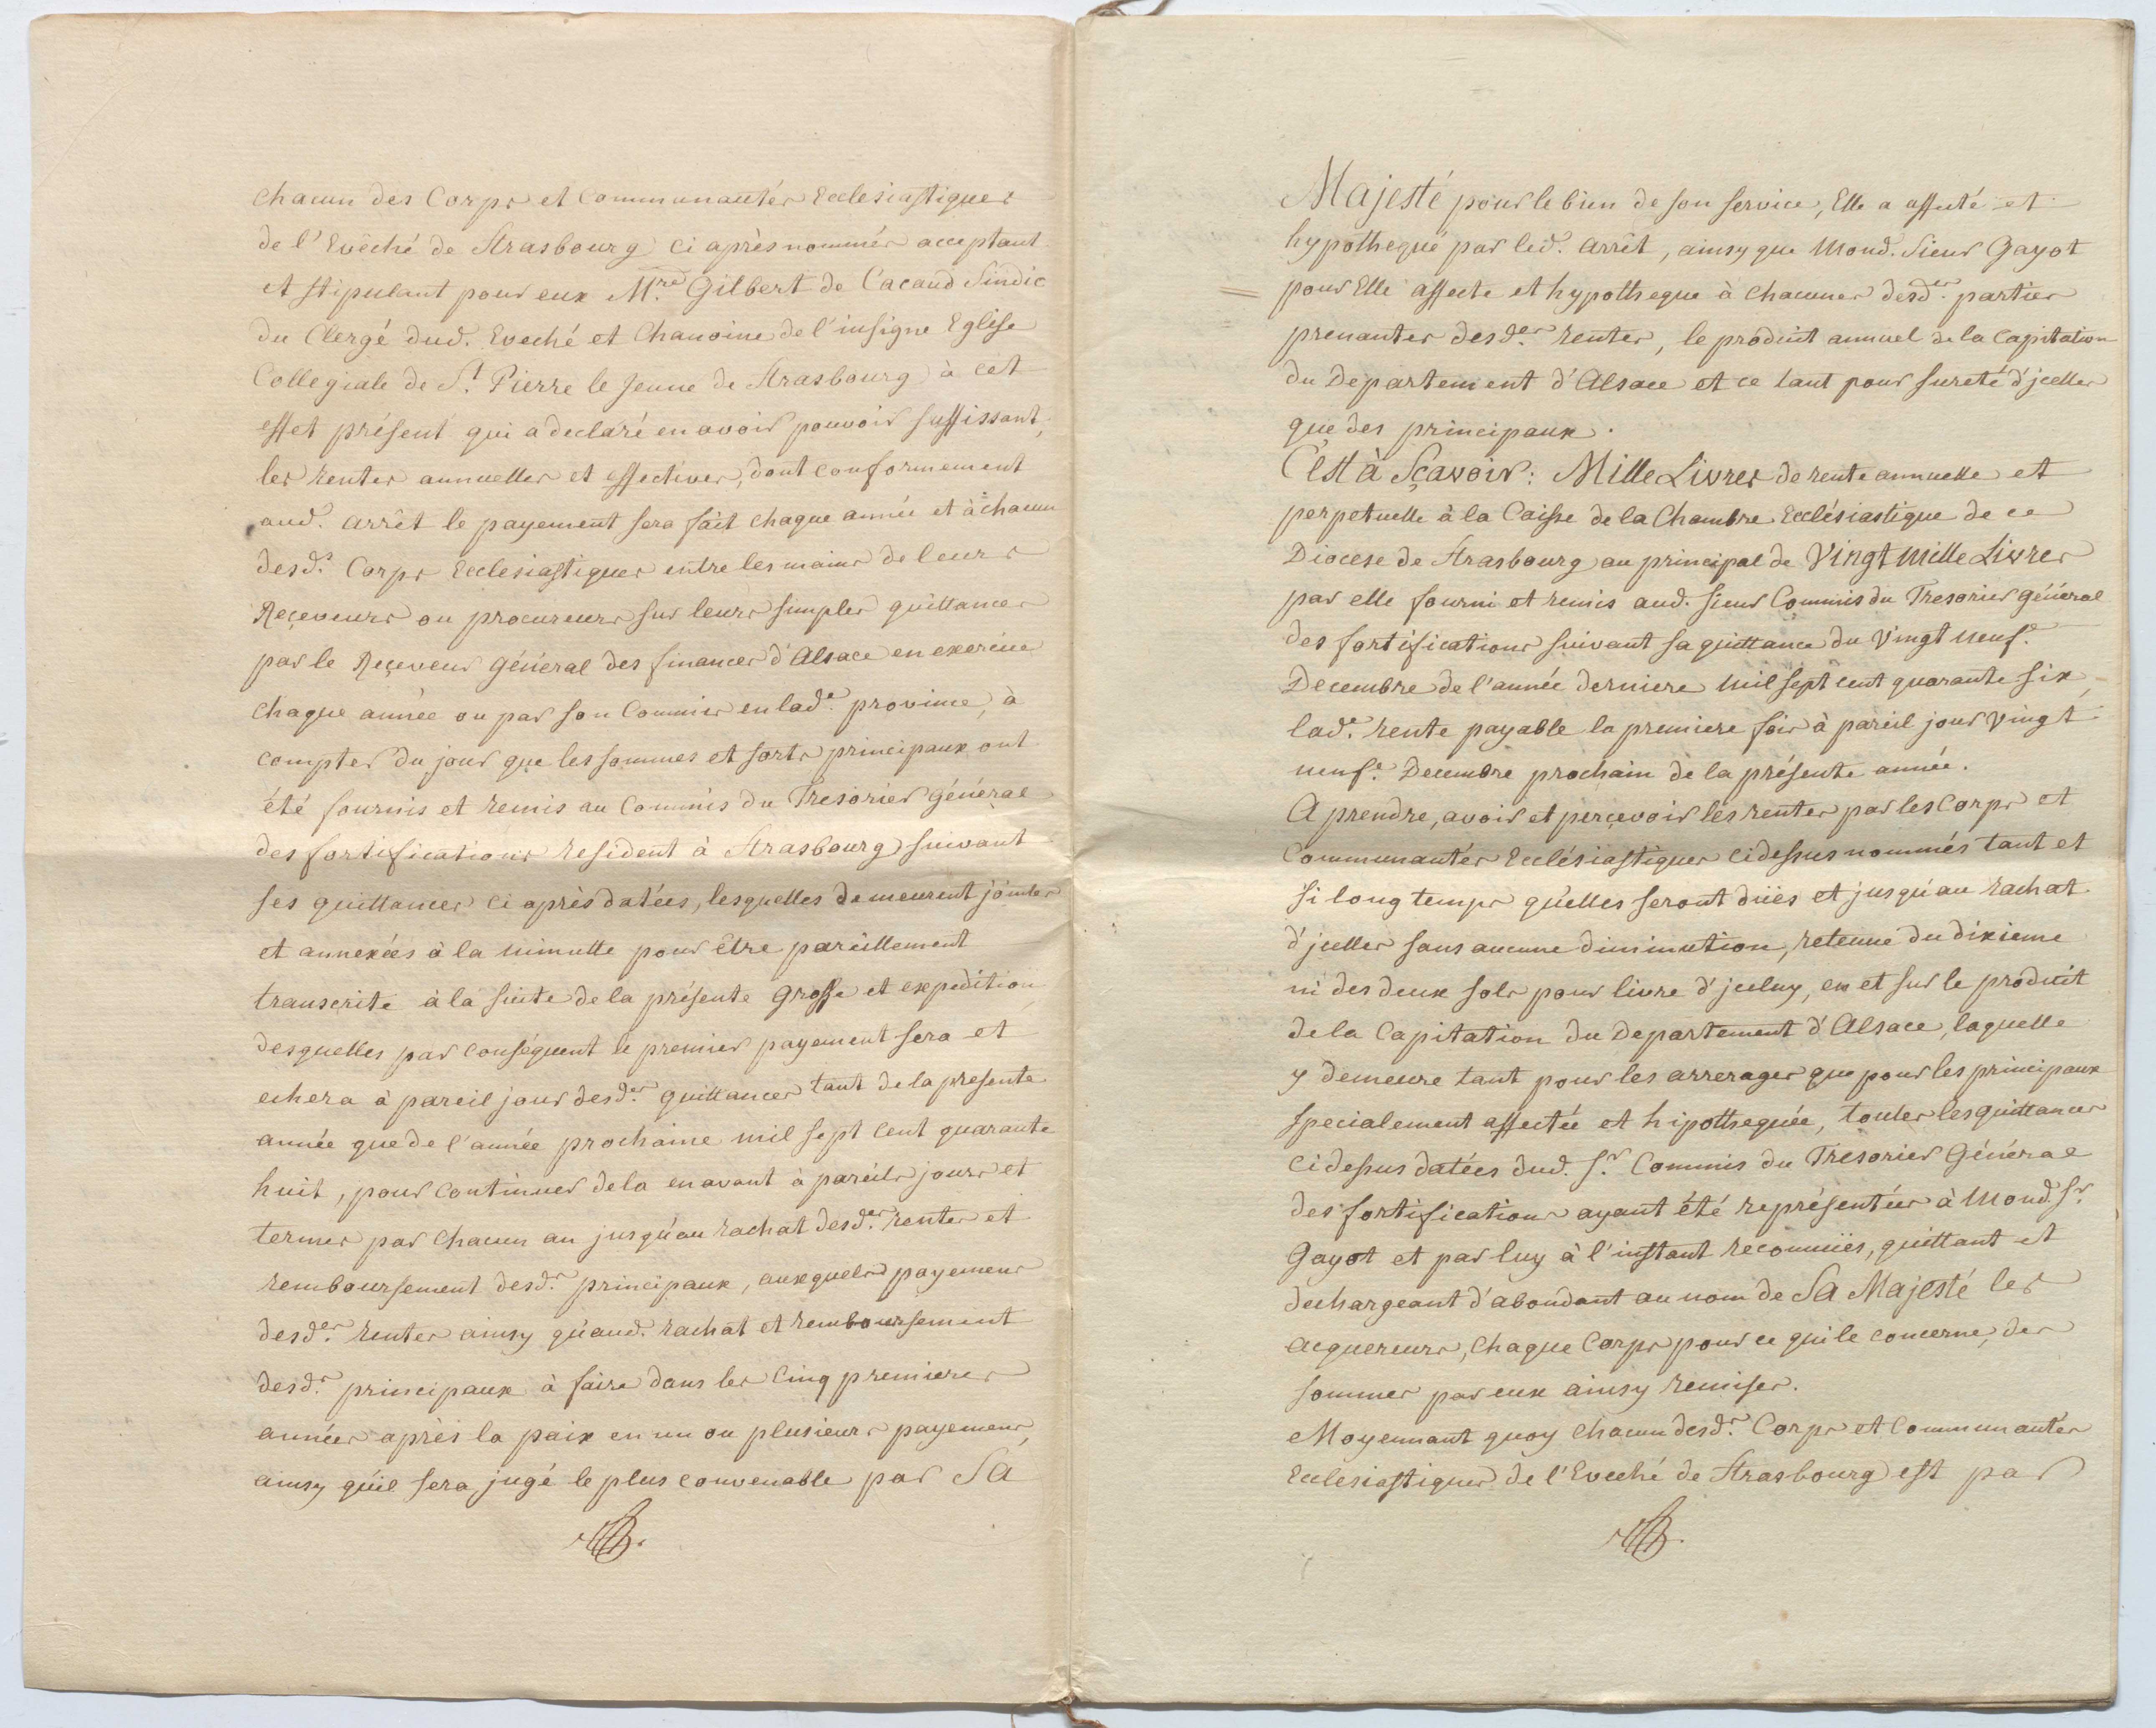 chacun des Corps et Communautés Ecclesiastiques
de l'Evêché de Strasbourg ci après nommés acceptant
et stipulant pour eux M.re Gilbert de Cacaud Sindic
du Clergé dud. Eveché et Chanoine de l'insigne Eglise
Collegiale de S.t Pierre le Jeune de Strasbourg à cet
effet présent qui a declaré en avoir pouvoir suffissant,
les rentes annuelles et effectives, dont conformement
aud. arrêt le payement sera fait chaque année et à chacun
desd.s Corps Ecclesiastiques entre les mains de leurs
Reçeveurs ou procureurs sur leurs simples quittances
par le Reçeveur Général des finances d'Alsace en exercice
chaque année ou par son Commis en lad.e province, à
compter du jour que les sommes et sorts principaux ont
été fournis et remis au Commis du Tresorier Général
des fortifications resident à Strasbourg suivant
ses quittances ci après datées, lesquelles demeurent jointes
et annexées à la minutte pour être pareillement
transcrite à la suite de la présente Grosse et expedition
desquelles par conséquent le premier payement sera et
echera à pareil jour desd.es quittances tant de la presente
année que de l'année prochaine mil sept cent quarante
huit, pour continuer de la en avant à pareils jours et
termes par chacun an jusqu'au rachat desd.es rentes et
remboursement desd.s principaux, auxquels payemens
desd.es rentes ainsy qu'aud. rachat et remboursement
desd.s principaux à faire dans les cinq premieres
années après la paix en un ou plusieurs payemens,
ainsy qu'il sera jugé le plus convenable par Sa
Majesté pour le bien de son service, Elle a affecté et
hypothequé par led. arrêt, ainsy que mond. Sieur Gayot
pour Elle affecte et hypotheque à chacunes desd.es parties
prenantes desd.es rentes, le produit annuel de la Capitation
du Departement d'Alsace et ce tant pour sureté d'jcelles
que des principaux.
C'est à Sçavoir: Mille Livres de rente annuelle et
perpetuelle à la Caisse de la Chambre Ecclésiastique de ce
Diocese de Strasbourg au principal de Vingt mille Livres
par elle fourni et remis aud. Sieur Commis du Tresorier Général
des fortifications suivant sa quittance du Vingt neuf.e
Decembre de l'année derniere mil sept cent quarante six,
lad.e rente payable la premiere fois à pareil jour Vingt
neuf.e Decembre prochain de la présente année.
A prendre, avoir et perçevoir les rentes par les Corps et
Communautés Ecclésiastiques cidessus nommés tant et
si long temps qu'elles seront düës et jusqu'au rachat
d'jcelles sans aucune diminution, retenue du dixieme
ni des deux sols pour livre d'jceluy, en et sur le produit
de la Capitation du Departement d'Alsace, laquelle
y demeure tant pour les arrerages que pour les principaux
specialement affectée et hipothequée, toutes les quittances
cidessus datées dud. S.r Commis du Tresorier Général
des fortifications ayant été représentées à Mond. S.r
Gayot et par luy à l'instant reconnües, quittant et
dechargeant d'abondant au nom de Sa Majesté les
acquereurs, chaque Corps pour ce qui le concerne, des
sommes par eux ainsy remises.
Moyennant quoy chacun desd.s Corps et Communautés
Ecclesiastiques de l'Eveché de Strasbourg est par